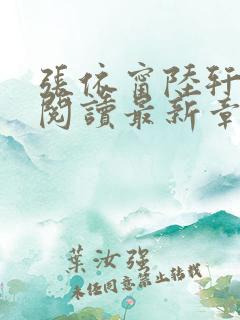 張依甯陸軒
閱讀最新章
葉汝強
未經同意禁止轉載